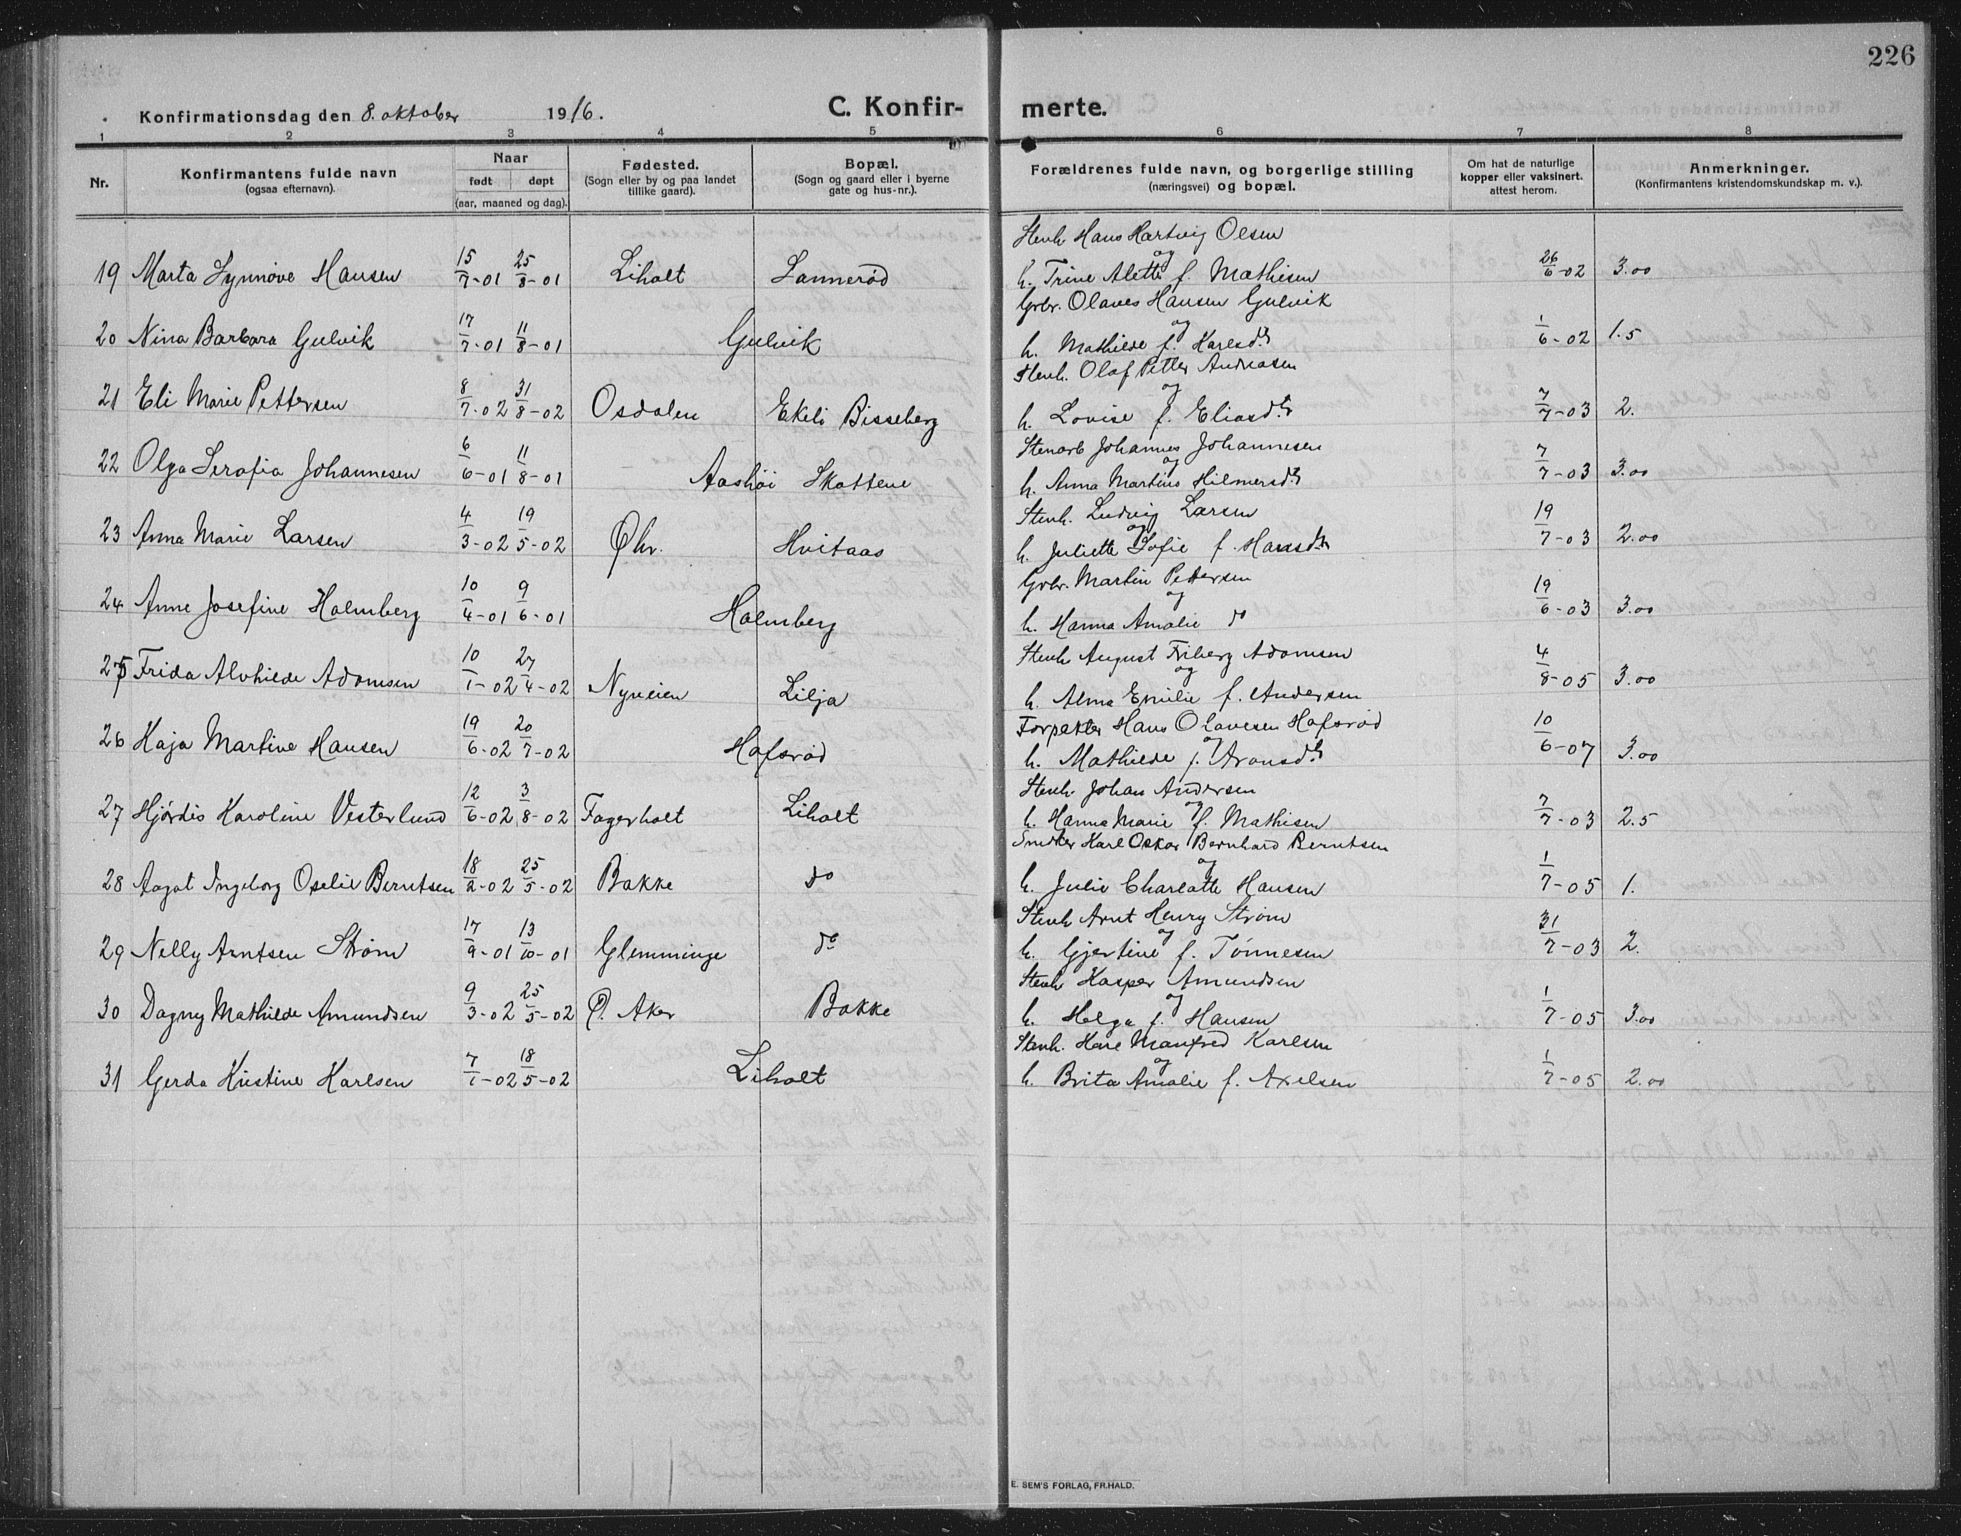 226
Konfirmationsdag den 8. oktober 1916.
C. Konfir- merte.
1 2 3 4 5 6 7 8
Nr.
Konfirmantens fulde navn
(ogsaa efternavn).
Naar
født døpt
(aar, maaned og dag).
Fødested.
(Sogn eller by og paa landet
tillike gaard).
Bopæl.
(Sogn og gaard eller i byerne
gate og hus-nr.).
Forældrenes fulde navn, og borgerlige stilling
(næringsvei) og bopæl.
Om hat de naturlige
kopper eller vaksinert.
attest herom.
Anmerkninger.
(Konfirmantens kristendomskundskap m. v.).
Stenh Hans Hartvig Olsen
og
19 Marta Synnøve Hansen 15/7-01 25/8-01 Liholt Sannerød h. Trine Alette f. Mathisen 26/6-02 3.00
Grbr. Olaves Hansen Gulvik
og
20 Nina Barbara Gulvik 17/7-01 11/8-01 Gulvik h. Mathilde f. Karlsdtr 1/6-02 1.5
Stenh. Olaf Petter Andreasen
og
21 Eli Marie Pettersen 8/7-02 31/8-02 Osdalen Ekeli Bisseberg h. Lovise f. Eliasdtr 7/7-03 2.
Stenarb Johannes Johannesen
og
22 Olga Serafia Johannesen 6/6-01 11/8-01 Aashøi Skottene h. Anna Martine Hilmersdtr 7/7-03 3.00
Stenh. Ludvig Larsen
og
23 Anna Marie Larsen 4/3-02 19/5-02 Øhr. Hvitaas h. Juliette Sofie f. Hansdtr 19/7-03 2.00
Grbr. Martin Pettersen
og
24 Anne Josefine Holmberg 10/4-01 9/6-01 Holmberg h. Hanna Amalie do 19/6-03 3.00
Stenh August Friberg Adamsen
og
25 Frida Alvhilde Adamsen 10/1-02 27/4-02 Nyveien Lilja h. Alma Emilie f. Andersen 4/8-05 3.00
Forpakter Hans Olavesen Hafsrød
og
26 Kaja Martine Hansen 19/6-02 20/7-02 Hafsrød h. Mathilde f. Aronsdtr 10/6-07 3.00
Stenh Johan Andersen
og
27 Hjørdis Karoline Vesterlund 12/6-02 3/8-02 Fagerholt Liholt h. Hanna Marie f. Mathisen 7/7-03 2.5
Snedker Karl Oskar Bernhard Berntsen
og
28 Aagot Ingeborg Oselie Berntsen 18/2-02 25/5-02 Bakke do h. Julie Charlotte Hansen 1/7-05 1.
Stenh Arnt Henry Strøm
og
29 Nelly Arntsen Strøm 17/9-01 13/10-01 Glemminge do h. Gjertine f. Tønnesen 31/7-03 2.
Stenh Kasper Amundsen
og
30 Dagny Mathilde Amundsen 9/3-02 25/5-02 Ø. Aker Bakke h. Helga f. Hansen 1/7-05 3.00
Stenh. Karl Manfred Karlsen
og
31 Gerda Kristine Karlsen 7/1-02 18/5-02 Liholt h. Brita Amalie f. Axelsen 1/7-05 2.00
E. SEM'S FORLAG, FR.HALD.